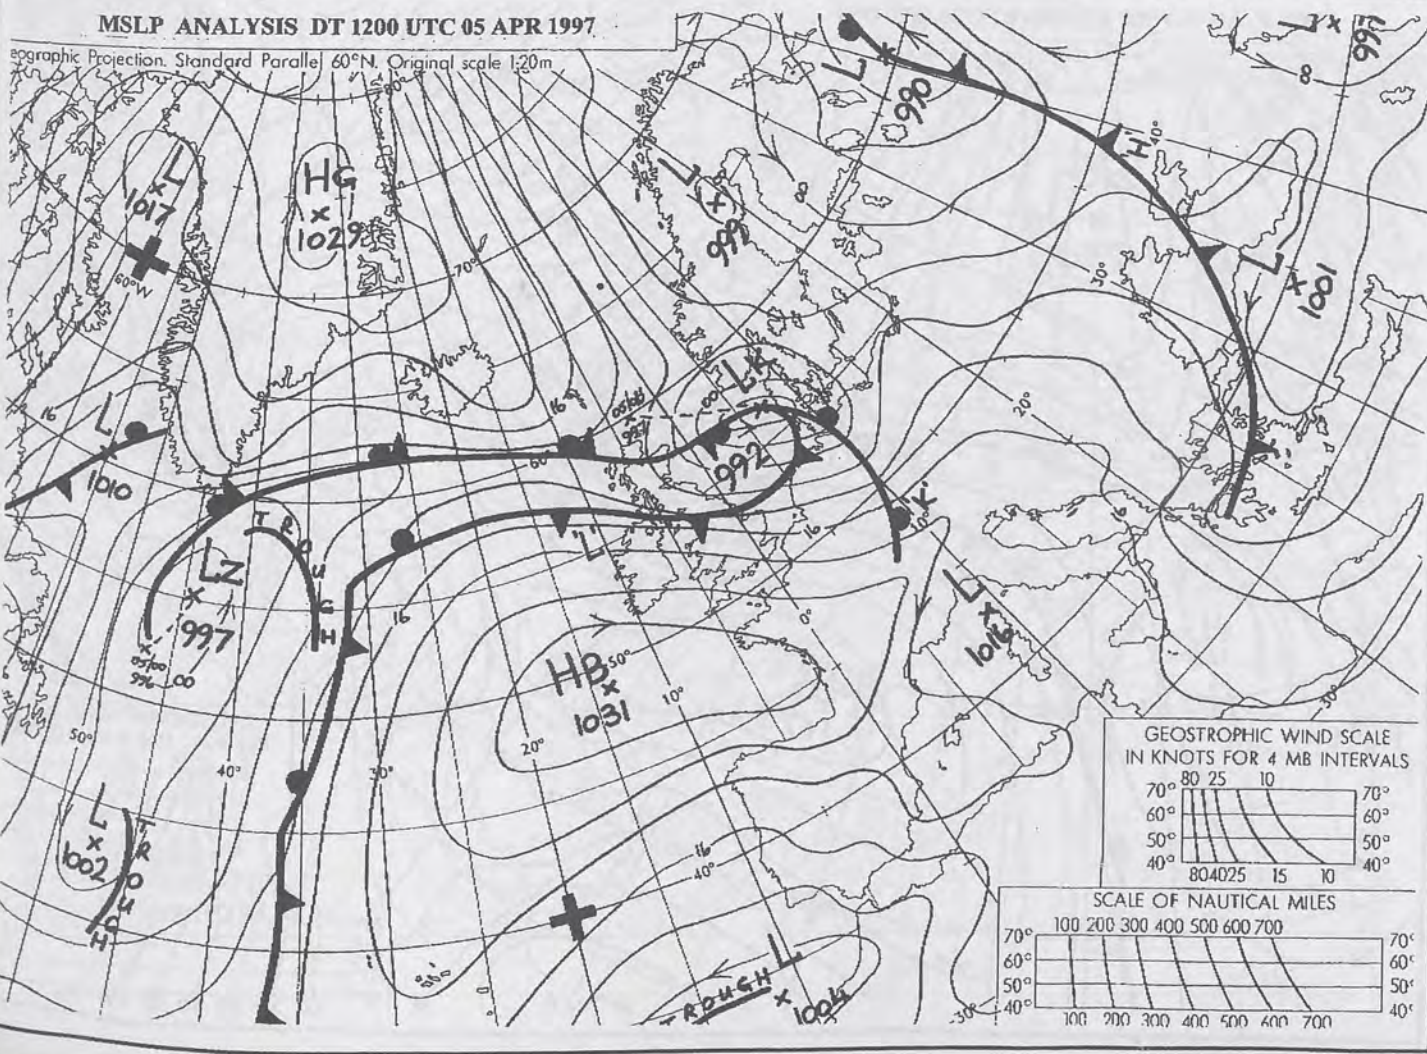 MSLP ANALYSIS DT 1200 UTC 05 APR 1997
eographic Projection. Standard Parallel 60°N. Original scale 1:20m
L
997
8
L
990
L
1017
HG
1029
60°W
70°
L
999
'H'
40°
L
1001
30°
20°
LK
992
05/00
997
16
60°
16
L
1010
TROUGH
LZ
997
05/00
996
00
'L'
16
16
'K'
10°
L
1016
0°
HB
50°
1031
10°
20°
30°
40°
50°
L
1002
TROUGH
16
40°
L
ROUGH
1004
30°
30°
GEOSTROPHIC WIND SCALE
IN KNOTS FOR 4 MB INTERVALS
80 25 10
70° 70°
60° 60°
50° 50°
40° 40°
80 40 25 15 10
SCALE OF NAUTICAL MILES
100 200 300 400 500 600 700
70° 70°
60° 60°
50° 50°
40° 40°
100 200 300 400 500 600 700